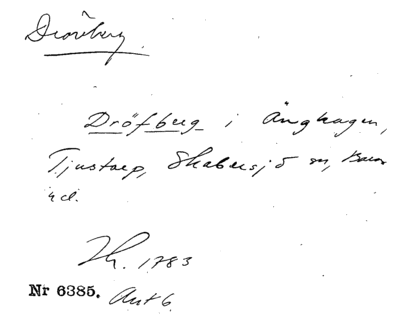 Drövberg
Dröfberg i Änghagen,
Tjustorp, Skabersjö sn, Bara
hd.
Th. 1783
Nr 6385. Ant 6